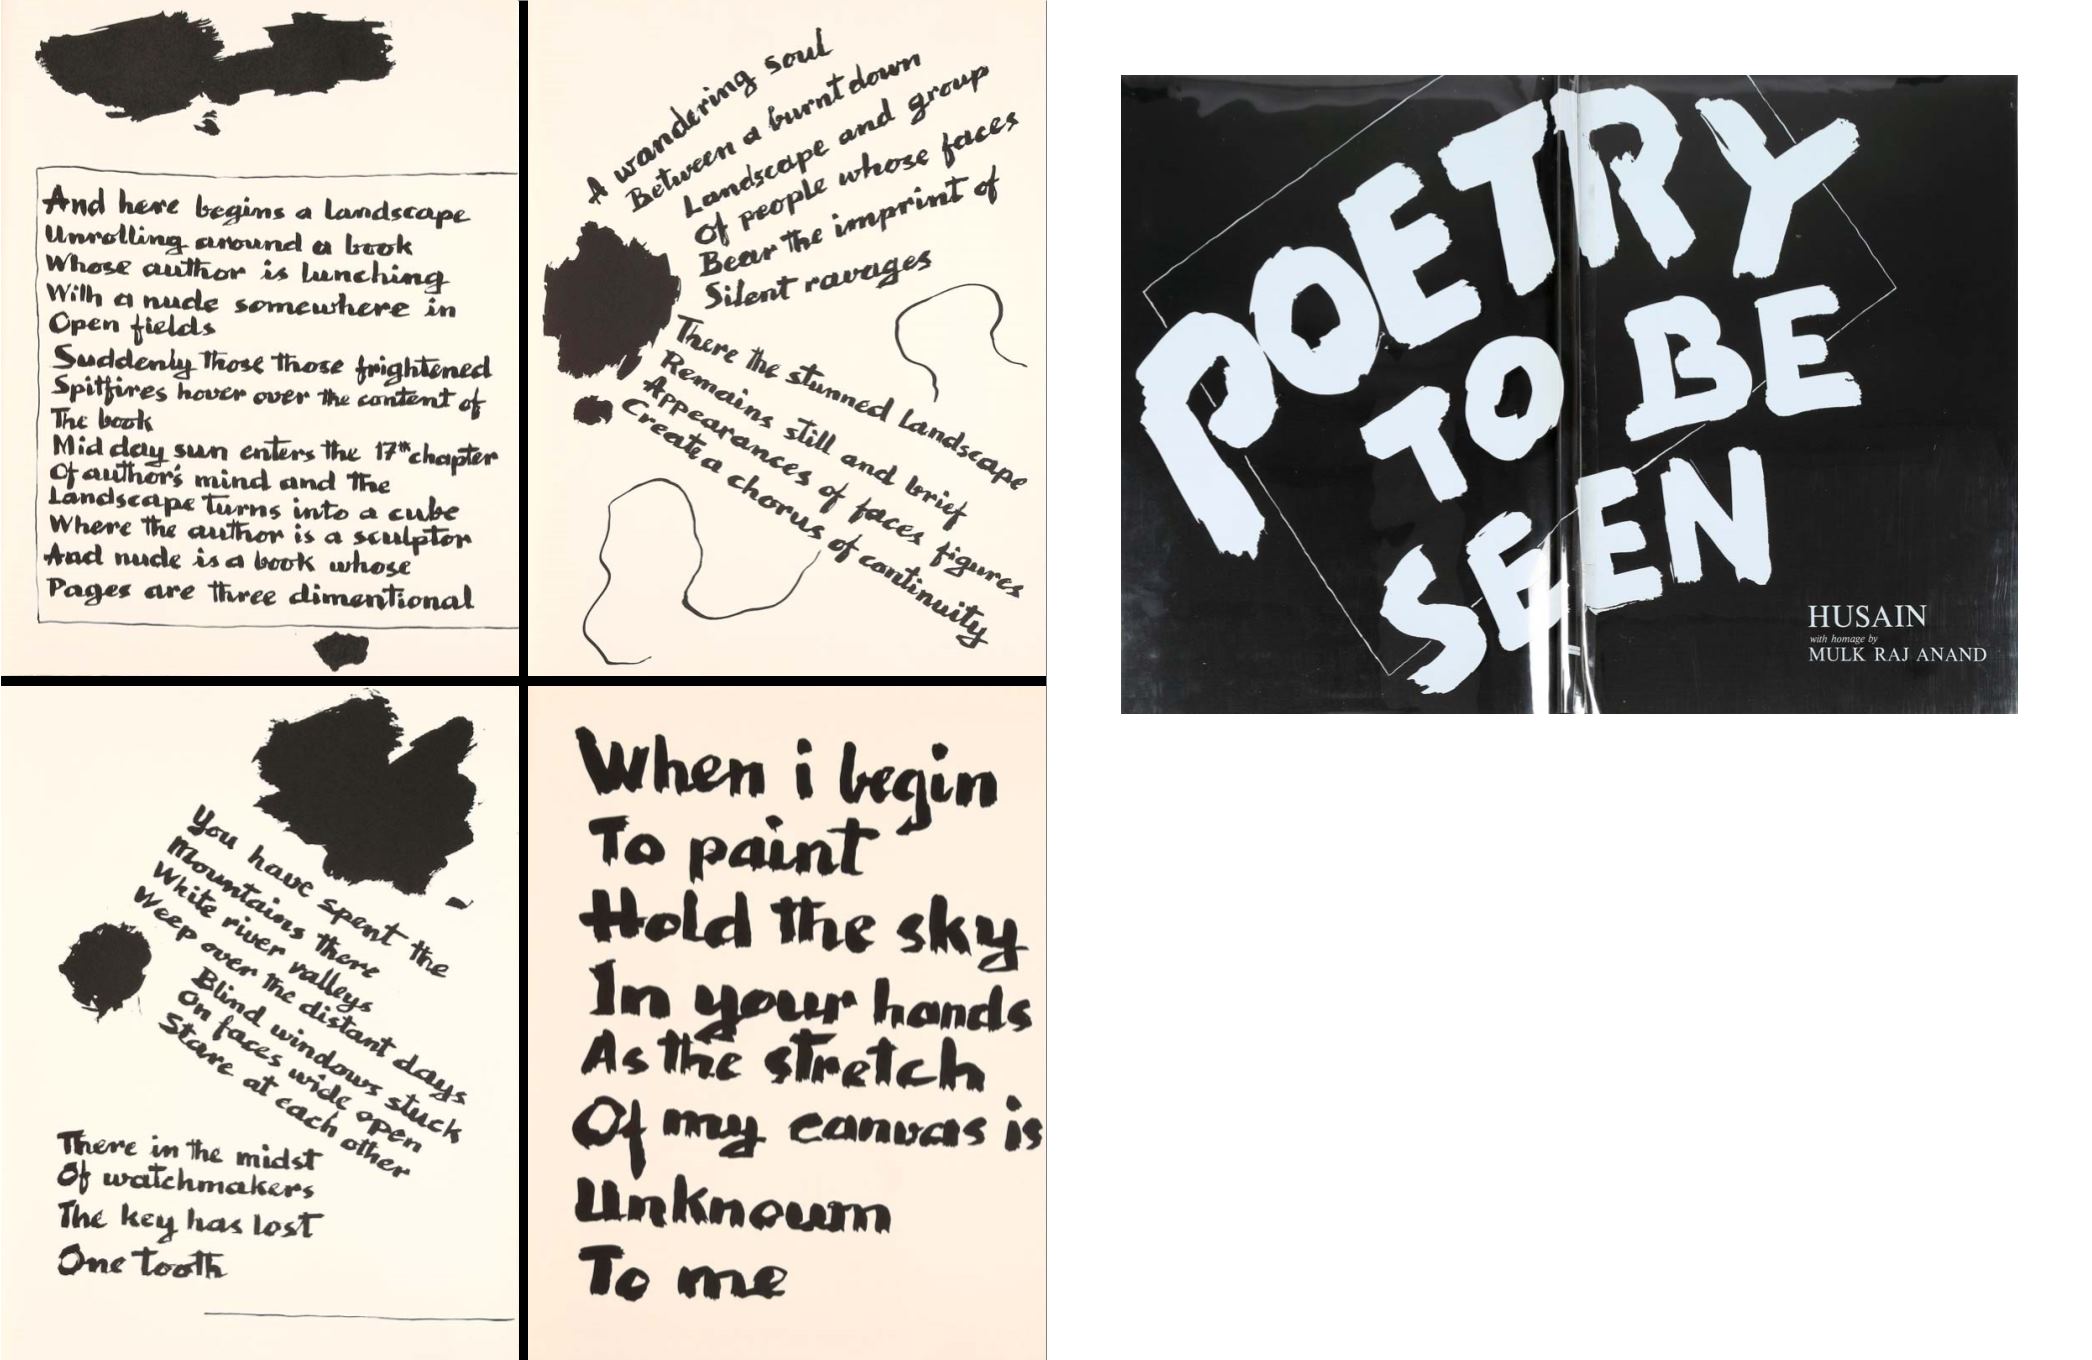 And here begins a landscape
Unrolling around a book
Whose author is lunching
With a nude somewhere in
Open fields
Suddenly those those frightened
Spitfires hover over the content of
The book
Mid day sun enters the 17th chapter
Of author's mind and the
Landscape turns into a cube
Where the author is a sculptor
And nude is a book whose
Pages are three dimentional
A wandering soul
Between a burnt down
Landscape and group
Of people whose faces
Bear the imprint of
Silent ravages
There the stunned landscape
Remains still and brief
Appearances of faces figures
Create a chorus of continuity
You have spent the
Mountains there
White river valleys
Weep over the distant days
Blind windows stuck
On faces wide open
Stare at each other
There in the midst
Of watchmakers
The key has lost
One tooth
When i begin
To paint
Hold the sky
In your hands
As the stretch
Of my canvas is
Unknown
To me
POETRY
TO BE
SEEN
HUSAIN
with homage by
MULK RAJ ANAND